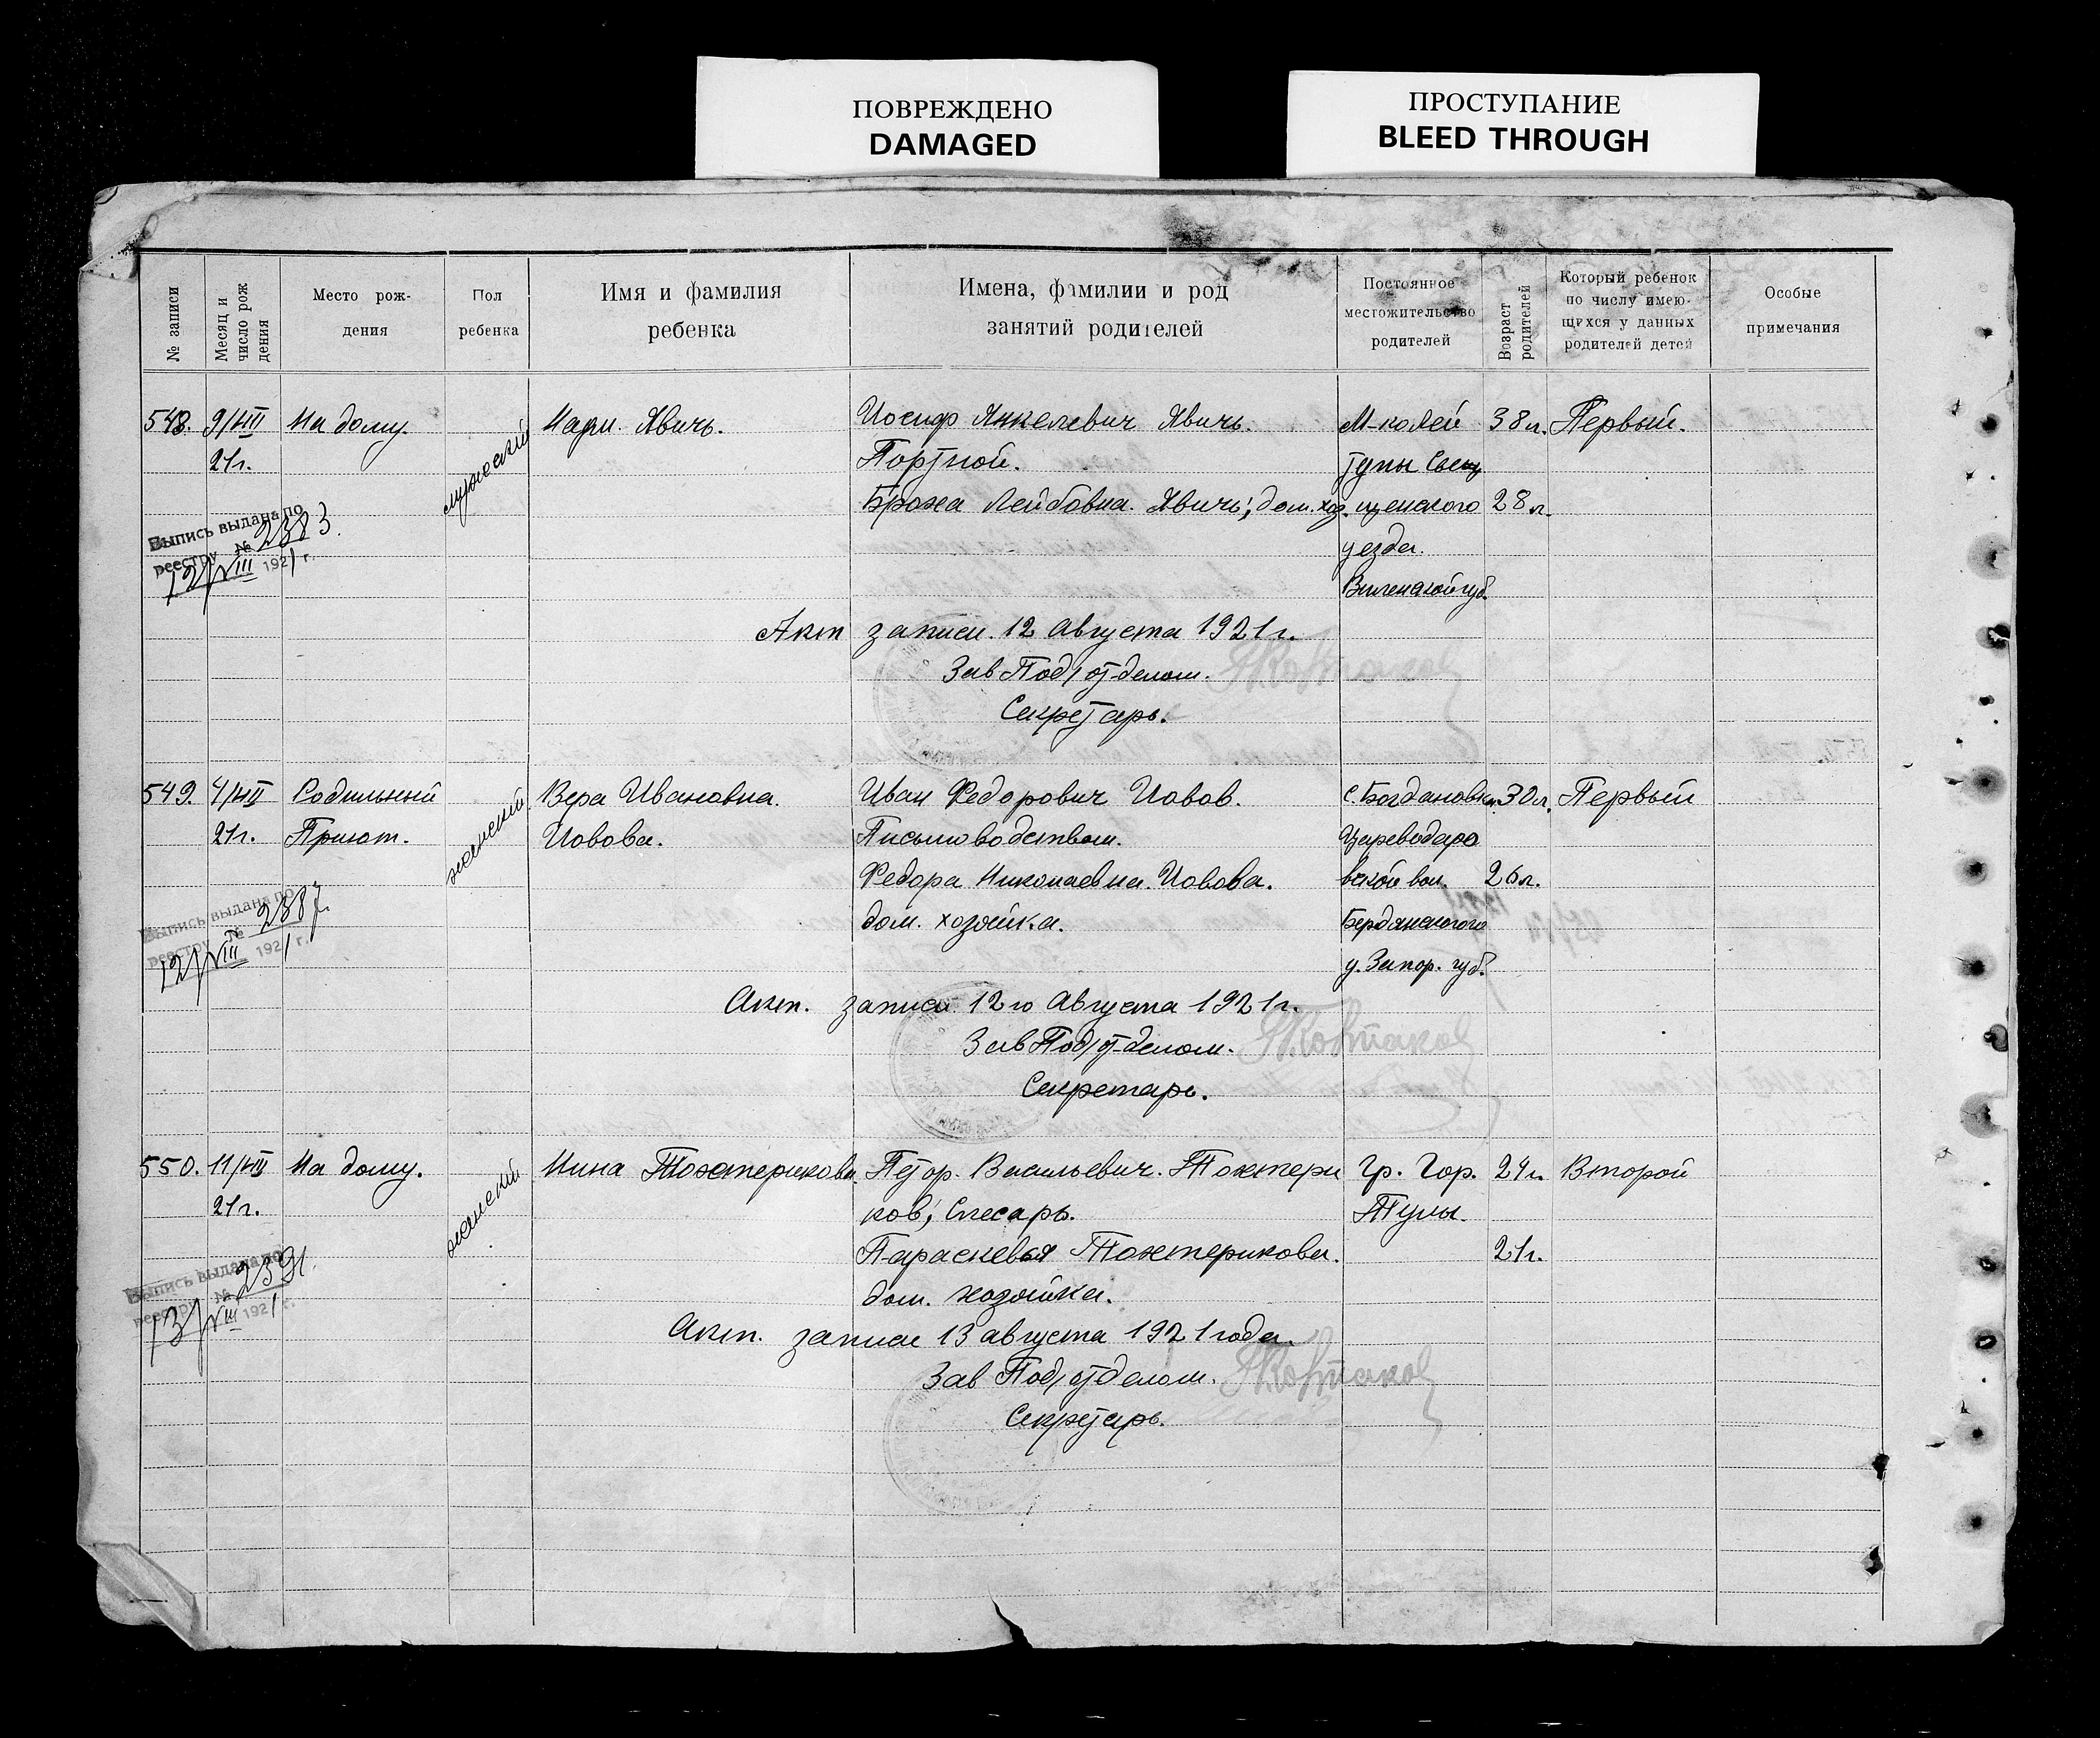 ПОВРЕЖДЕНО
DAMAGED
ПРОСТУПАНИЕ
BLEED THROUGH
№ записи
Месяц и
число рож
дения
Место рож-
дения
Пол
ребенка
Имя и фамилия
ребенка
Имена, фамилии и род
занятий родителей
Постоянное
местожительство
родителей
Возраст
родителей
Который ребенок
по числу имею-
щихся у данных
родителей детей
Особые
примечания
548. 9/VIII На дому. мужской Явичь. Иосиф Янкелевич Явичь. 38 л. Первый.
21 г. Портной.
Лейбовна. Явичь; дом. хоз. щенского 28 л.
уезда.
Виленской губ.
Выпись выдана по
реестру № 2383.
12/VIII 1921 г.
Акт записи. 12 Августа 1921 г.
Зав Под/отделом.
Секретарь.
549. 4/VIII Родильный женский Вера Ивановна. Иван Федорович Иовов. с. Богдановки. 30 л. Первый
21 г. Приют. Иовова. Письмоводством. Цареводаро
Федора Николаевна. Иовова. вской вол. 26 л.
дом. хозяйка. Бердянского
у. Запор. губ.
Выпись выдана по
реестру № 2387.
12/VIII 1921 г.
Акт. записи 12 го Августа 1921 г.
Зав Под/отделом.
Секретарь.
550. 11/VIII На дому. женский Нина Тохтерикова. Петор. Васильевич. Тохтери Гр. Гор. 24 г. Второй
21 г. ков; Слесарь. Тулы.
Параскевья Тохтерикова. 21 г.
дом. хозяйка.
Выпись выдана по
реестру № 2391.
13/VIII 1921 г.
Акт. записи 13 августа 1921 года.
Зав Под/отделом.
Секретарь.